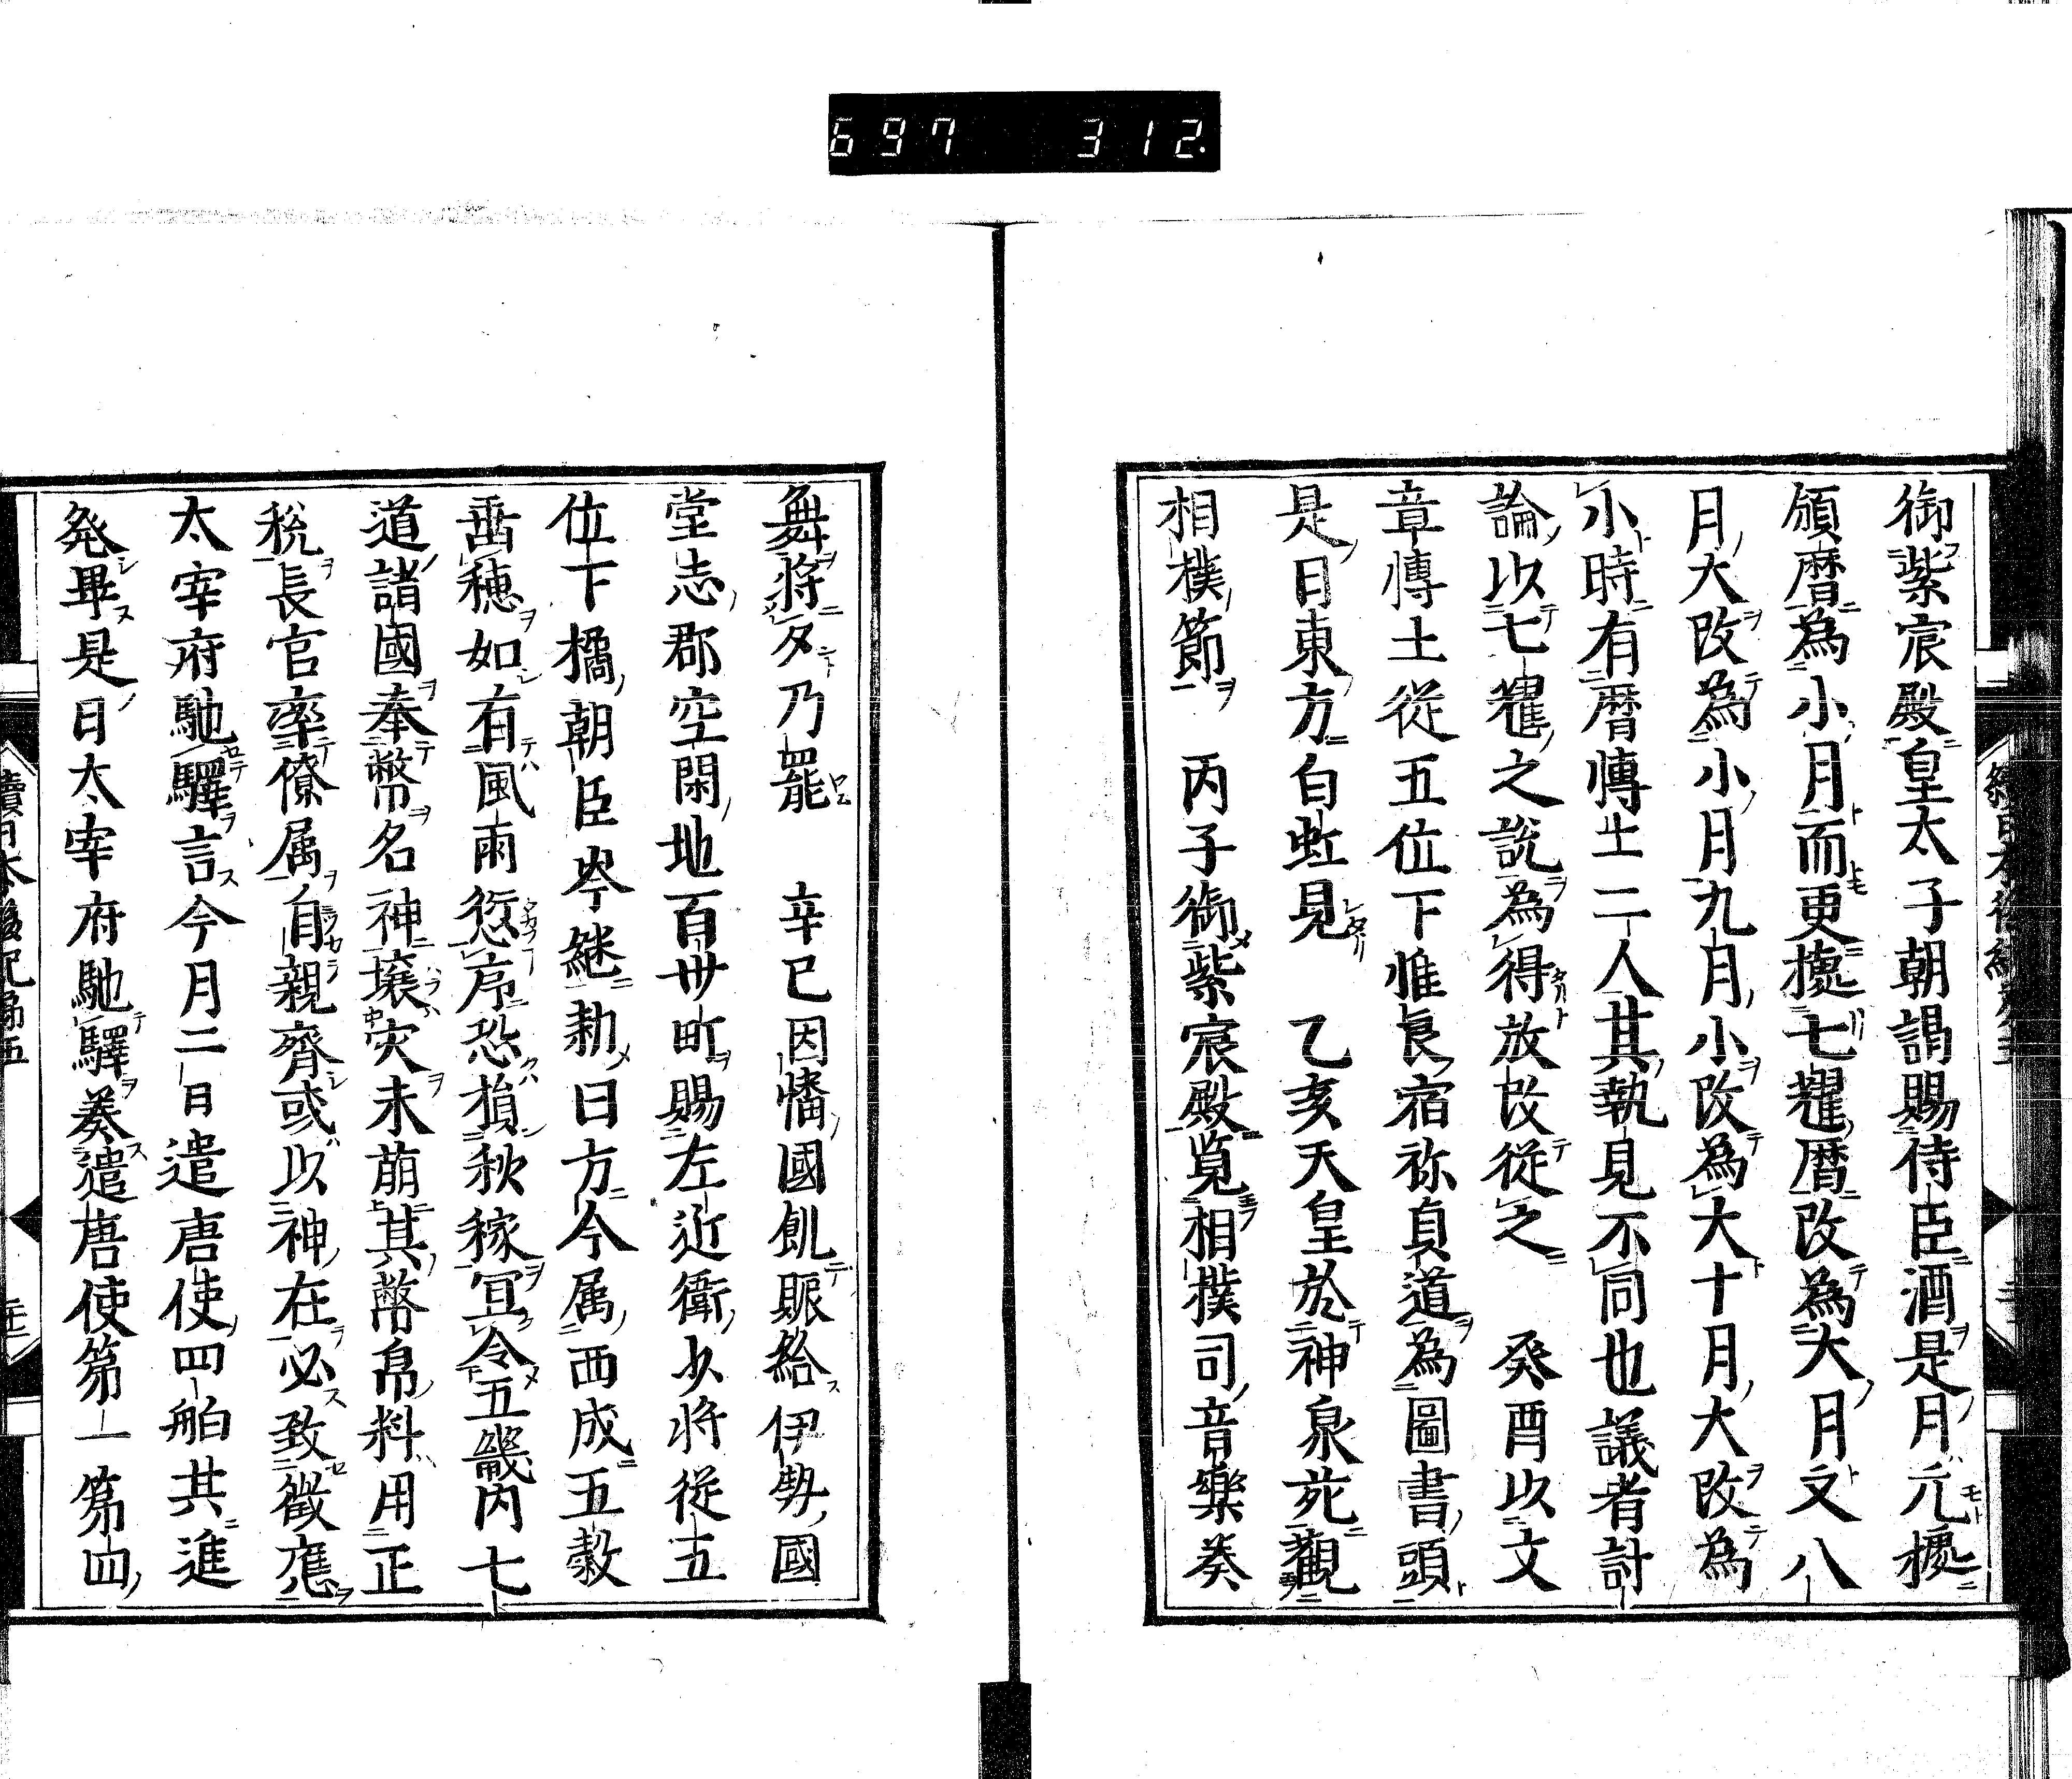 697 312.
御紫宸殿皇太子朝謁賜侍臣酒是月元據
頒暦為小月而更據七耀暦改為大月又八
月大改為小月九月小改為大十月大改為
小時有暦愽士二人其執見不同也議者計
論以七耀之說為得放改從之　癸酉以文
章愽士從五位下惟良宿祢貞道為圖書頭
是日東方白虹見　乙亥天皇於神泉苑觀
相撲節　丙子御紫宸殿覧相撲司音樂奏
舞將夕乃罷　辛巳因幡國飢賑給伊勢國
堂志郡空閑地百卅町賜左近衛少將從五
位下橘朝臣岑継勅曰方今属西成五穀
垂穂如有風雨愆序恐損秋稼冝令五畿内七
道諸國奉幣名神攘灾未萠其幣帛料用正
税長官率僚属自親齊戒以神在必致徴應
太宰府馳驛言今月二日遣唐使四舶共進
発畢是日太宰府馳驛奏遣唐使第一第四
續日本後紀第五